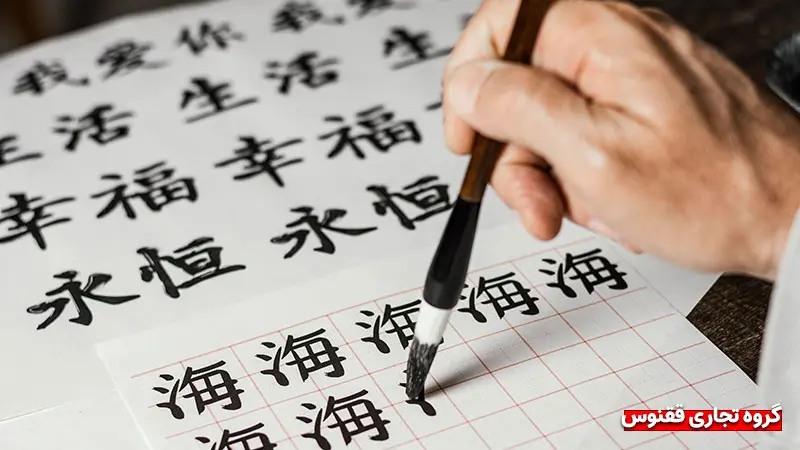 我爱你 我爱
生活 生活 生
幸福 幸福
永恒 永恒
海海海海海
海海
گروه تجاری ققنوس